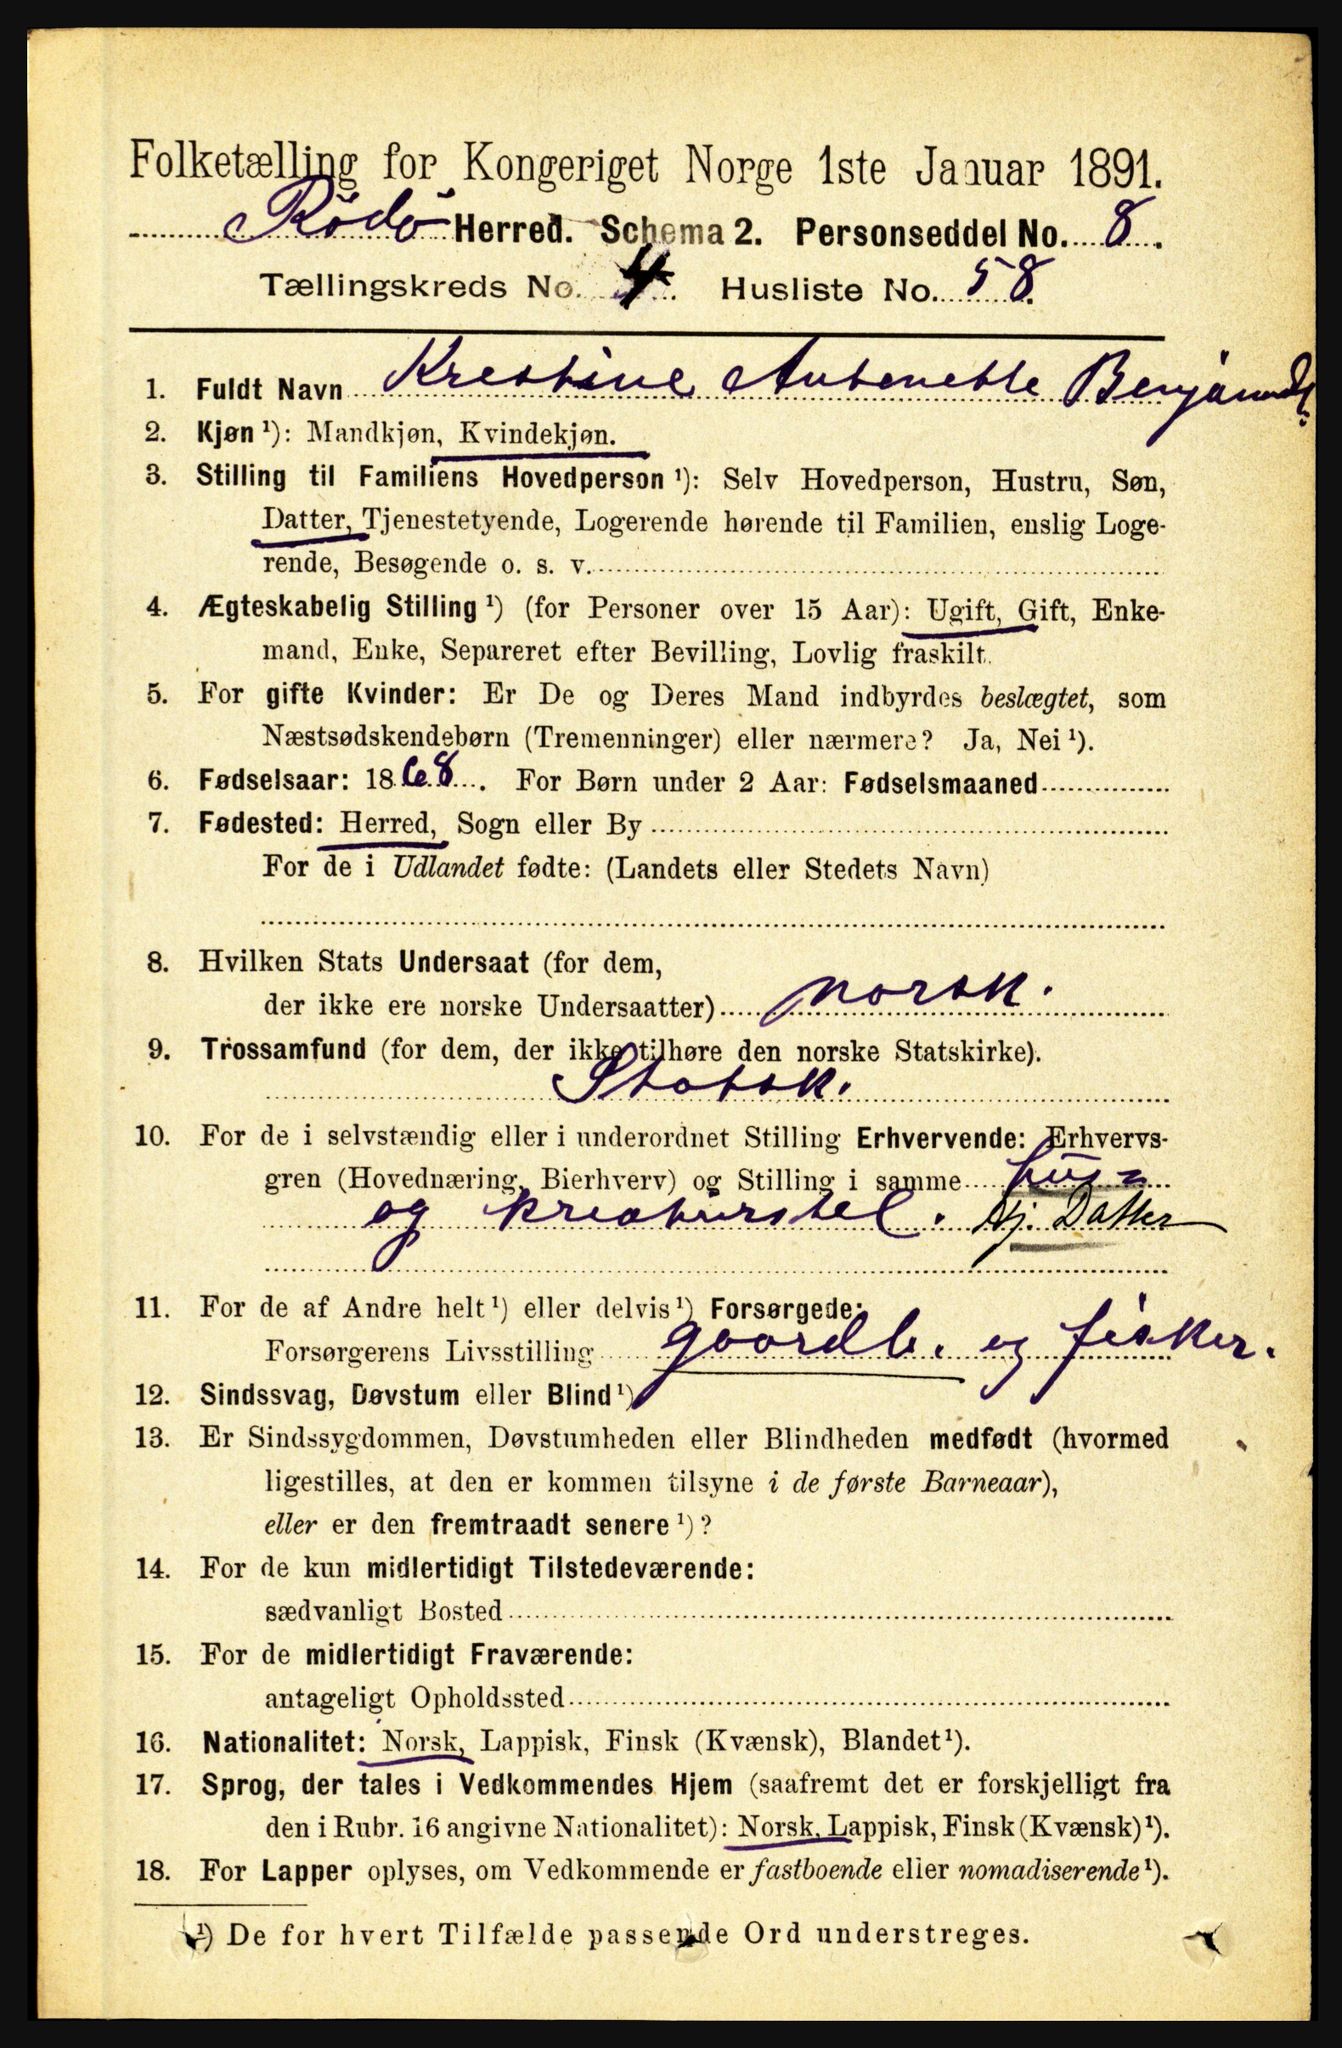 Folketælling for Kongeriget Norge 1ste Januar 1891.
Rödö Herred. Schema 2. Personseddel No. 8.
Tællingskreds No. 4. Husliste No. 58.
1. Fuldt Navn Krestine Antenette Benjamindt.
2. Kjøn¹): Mandkjøn, Kvindekjøn.
3. Stilling til Familiens Hovedperson¹): Selv Hovedperson, Hustru, Søn,
Datter, Tjenestetyende, Logerende hørende til Familien, enslig Loge-
rende, Besøgende o. s. v.
4. Ægteskabelig Stilling¹) (for Personer over 15 Aar): Ugift, Gift, Enke-
mand, Enke, Separeret efter Bevilling, Lovlig fraskilt.
5. For gifte Kvinder: Er De og Deres Mand indbyrdes beslægtet, som
Næstsødskendebørn (Tremenninger) eller nærmere? Ja, Nei¹).
6. Fødselsaar: 1868. For Børn under 2 Aar: Fødselsmaaned
7. Fødested: Herred, Sogn eller By
For de i Udlandet fødte: (Landets eller Stedets Navn)
8. Hvilken Stats Undersaat (for dem,
der ikke ere norske Undersaatter) norsk.
9. Trossamfund (for dem, der ikke tilhøre den norske Statskirke).
Statsk.
10. For de i selvstændig eller i underordnet Stilling Erhvervende: Erhvervs-
gren (Hovednæring, Bierhverv) og Stilling i samme hus=
og kreaturstel. Hj. Datter
11. For de af Andre helt¹) eller delvis¹) Forsørgede:
Forsørgerens Livsstilling gaardb. og fisker.
12. Sindssvag, Døvstum eller Blind¹)
13. Er Sindssygdommen, Døvstumheden eller Blindheden medfødt (hvormed
ligestilles, at den er kommen tilsyne i de første Barneaar),
eller er den fremtraadt senere¹)?
14. For de kun midlertidigt Tilstedeværende:
sædvanligt Bosted
15. For de midlertidigt Fraværende:
antageligt Opholdssted
16. Nationalitet: Norsk, Lappisk, Finsk (Kvænsk), Blandet¹).
17. Sprog, der tales i Vedkommendes Hjem (saafremt det er forskjelligt fra
den i Rubr. 16 angivne Nationalitet): Norsk, Lappisk, Finsk (Kvænsk)¹).
18. For Lapper oplyses, om Vedkommende er fastboende eller nomadiserende¹).
¹) De for hvert Tilfælde passende Ord understreges.